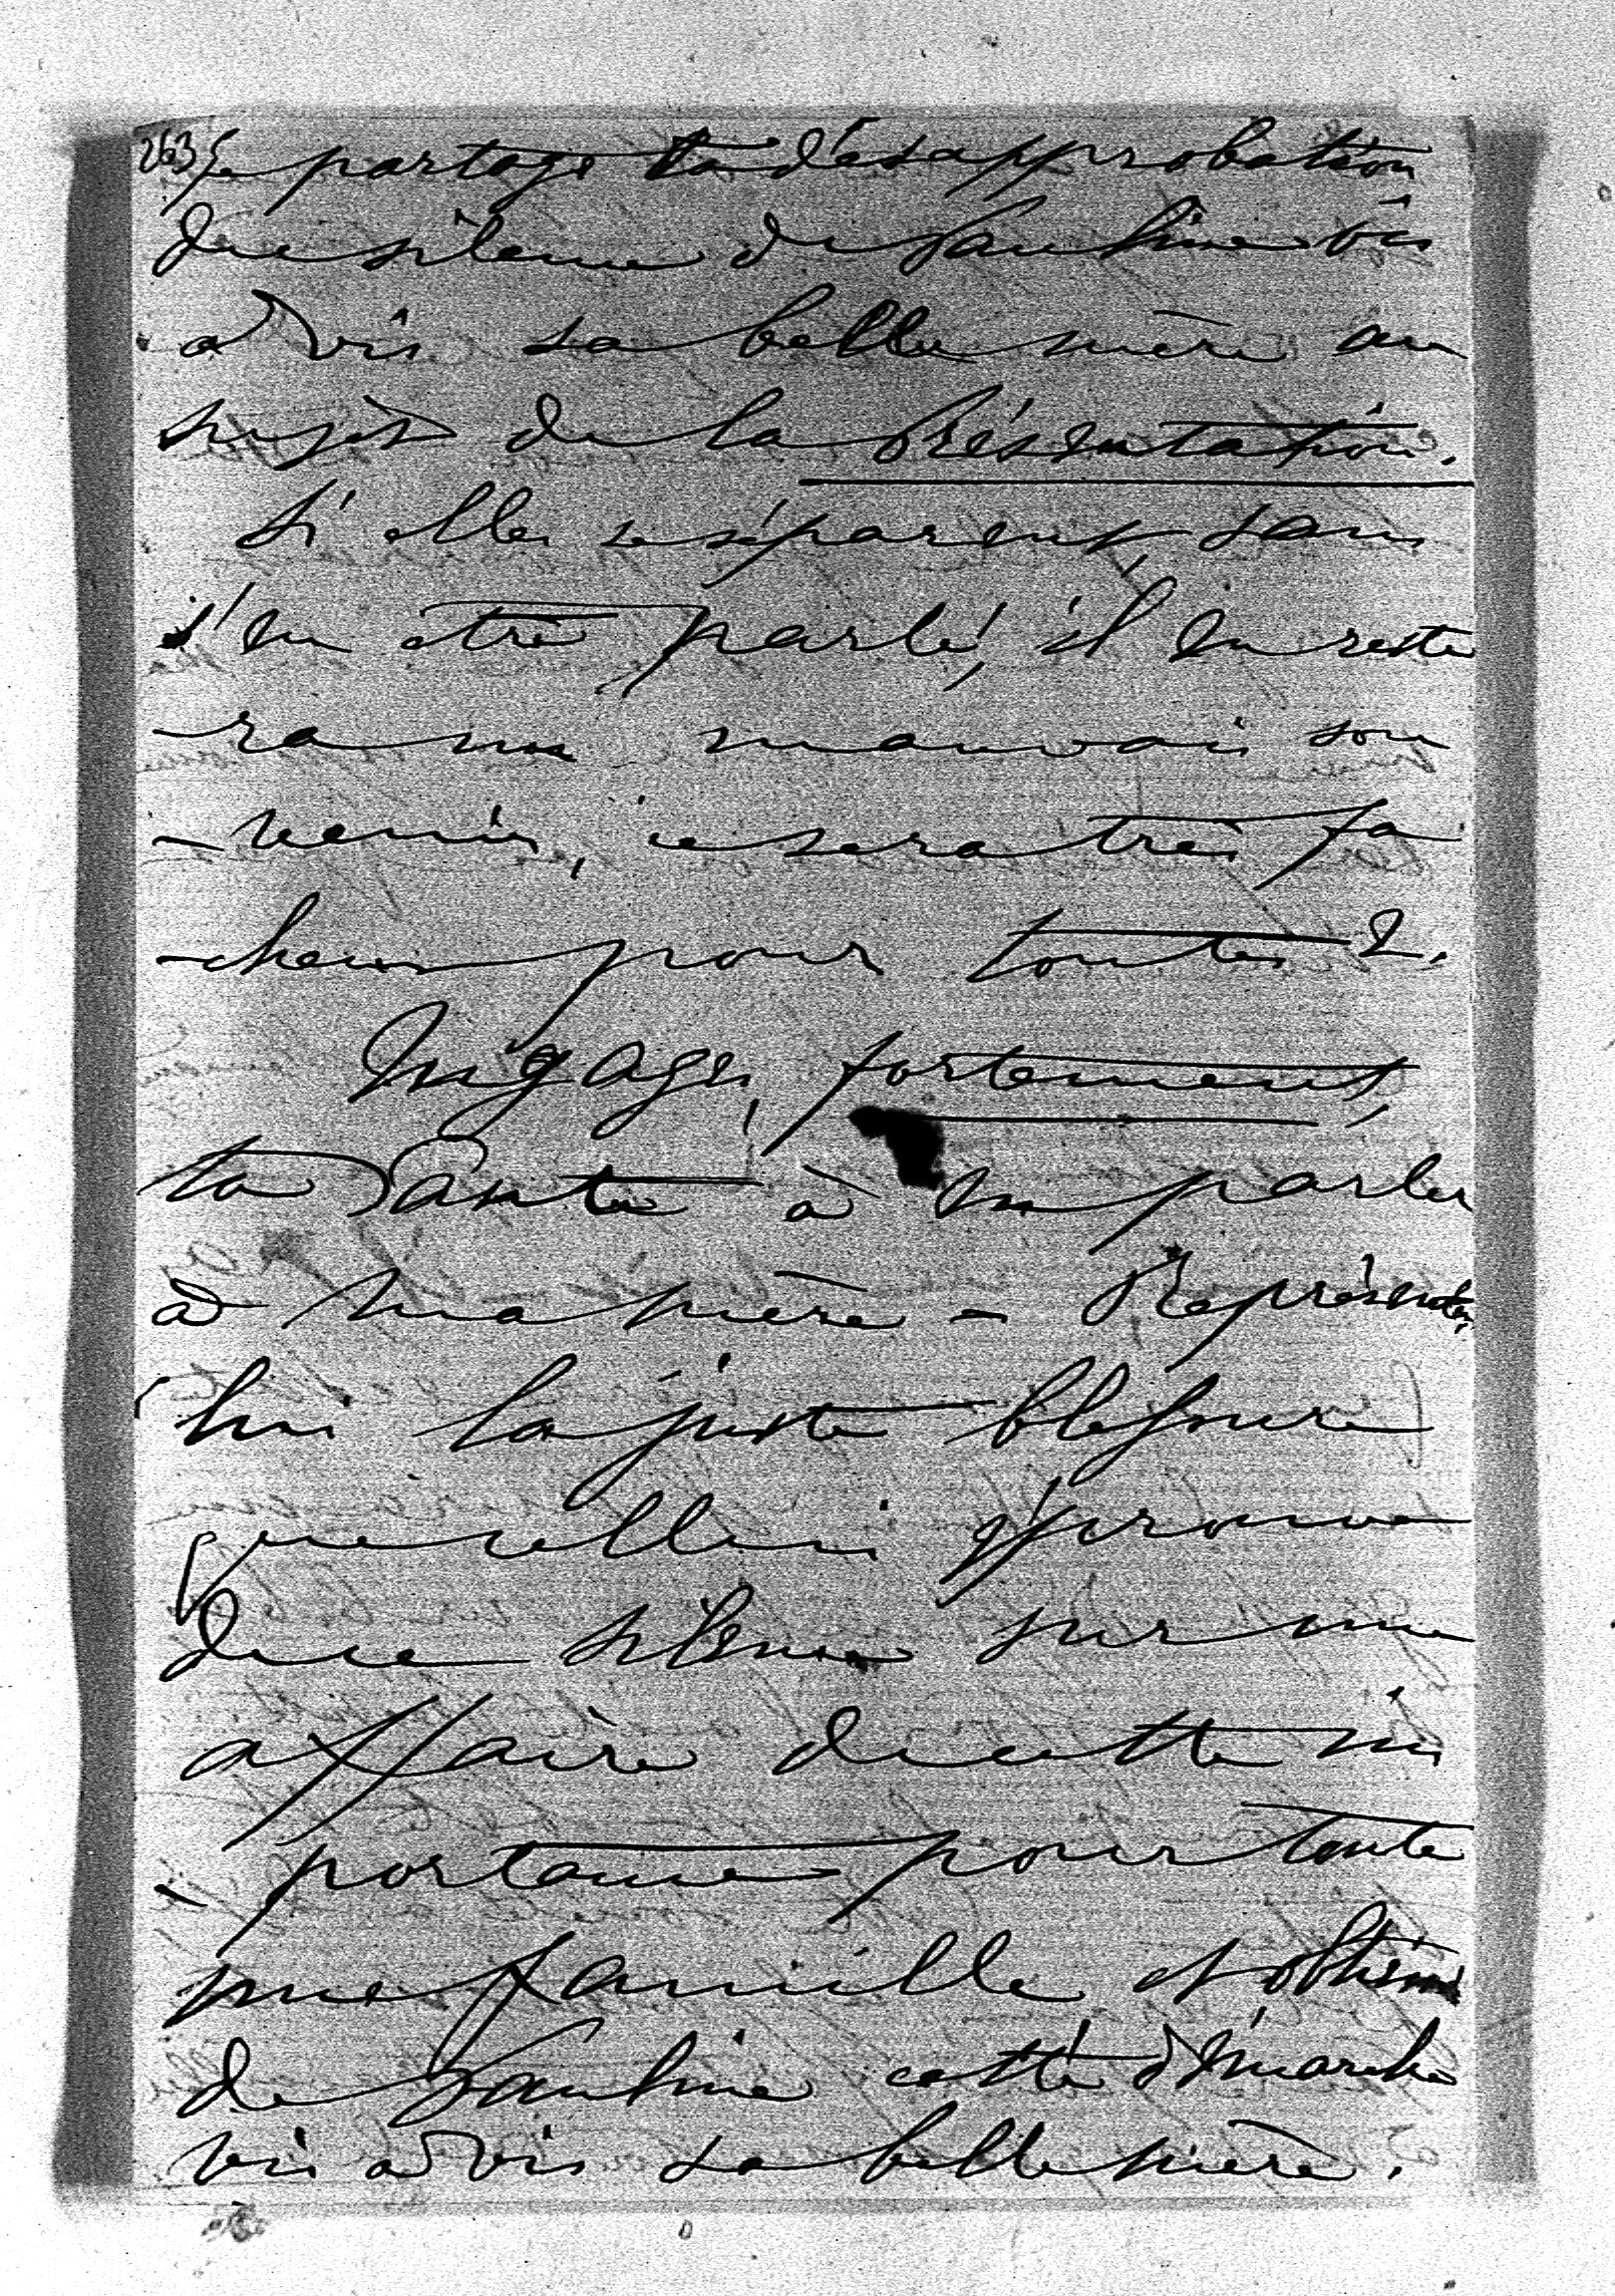 263 Je partage ta désapprobation
du silence de Pauline vis
à vis sa belle mère au
sujet de la Présentation.
Si elles se séparent, sans
s'en être parlé, il en reste
-ra un mauvais sou
-venir, ce sera très fa
-cheux pour toutes 2.
Engages, fortement,
ta Tante à en parler
à ma mère - Représentes
lui la juste blessure
que celle ci éprouve
de ce silence sur une
affaire de cette im
- portance pour toute
une famille et obtiens
de Pauline cette démarche
vis à vis sa belle mère.